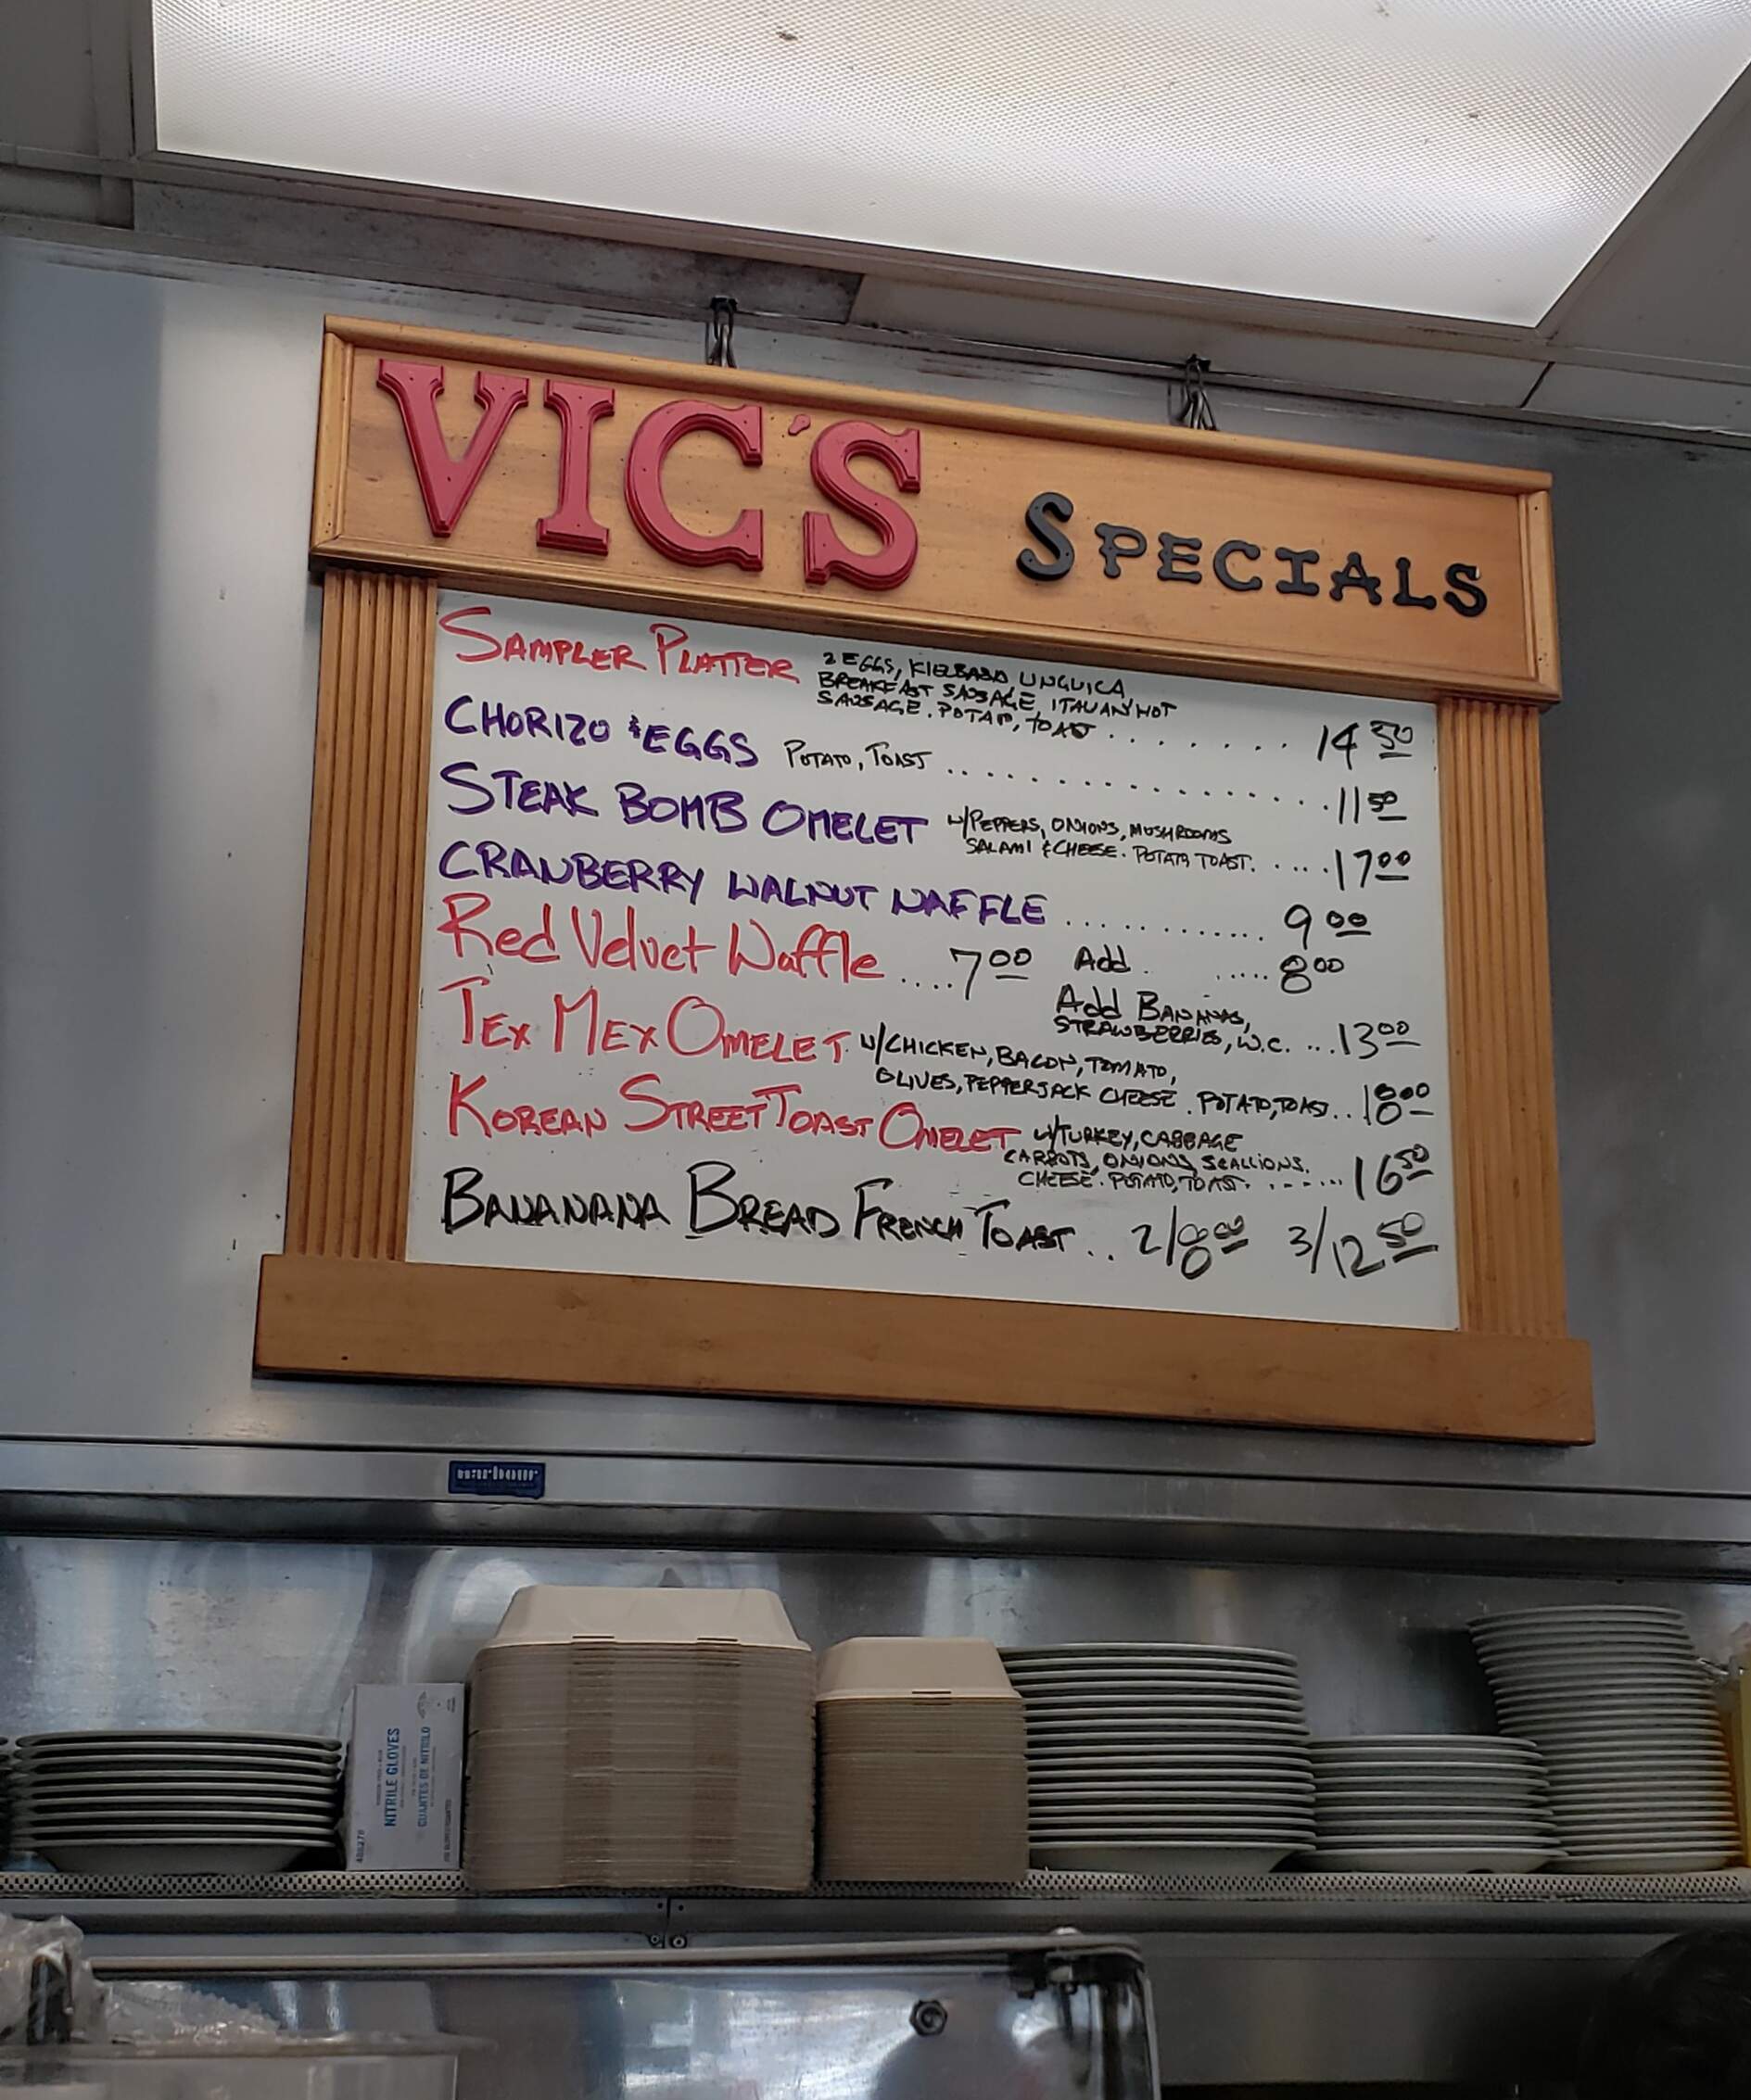 VIC'S SPECIALS
SAMPLER PLATTER 2 EGGS, KIELBASA LINGUICA,
BREAKFAST SAUSAGE, ITALIAN HOT
SAUSAGE. POTATO, TOAST ........ 14 50
CHORIZO & EGGS POTATO, TOAST ................ 11 50
STEAK BOMB OMELET W/PEPPERS, ONIONS, MUSHROOMS
SALAMI & CHEESE. POTATO TOAST. ..... 17 00
CRANBERRY WALNUT WAFFLE ............ 9 00
Red Velvet Waffle .... 7 00 Add ..... 8 00
Add BANANAS,
STRAWBERRIES, W.C. ... 13 00
TEX MEX OMELET W/CHICKEN, BACON, TOMATO,
OLIVES, PEPPERJACK CHEESE. POTATO, TOAST.. 18 00
KOREAN STREET TOAST OMELET W/TURKEY, CABBAGE
CARROTS, ONIONS, SCALLIONS.
CHEESE. POTATO, TOAST. ...... 16 50
BANANANA BREAD FRENCH TOAST .. 2/8 00 3/12 50
harbour
NITRILE GLOVES
GUANTES DE NITRILO